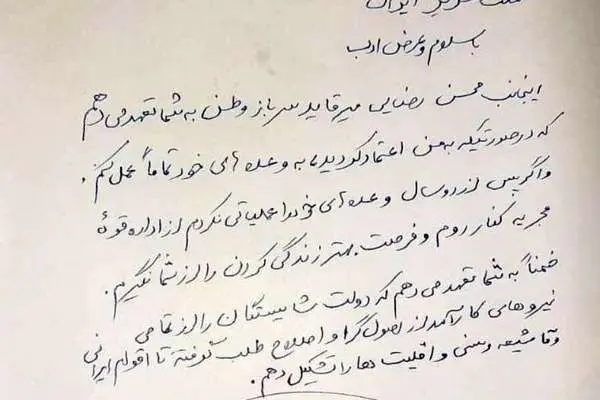 ملت عزیز ایران
با سلام و عرض ادب
اینجانب محسن رضایی میرقاید سرباز وطن به شما تعهد می دهم
که در صورتیکه به من اعتماد کردید، به وعده های خود تماماً عمل کنم.
و اگر پس از دو سال وعده های خود را عملیاتی نکردم از اداره قوهٔ
مجریه کنار روم و فرصت بهتر زندگی کردن را از شما نگیرم.
ضمناً به شما تعهد می دهم که دولت شایستگان را از تمامی
نیروهای کارآمد از اصول گرا و اصلاح طلب گرفته تا اقوام ایرانی
و تا شیعه و سنی و اقلیت ها را تشکیل دهم.